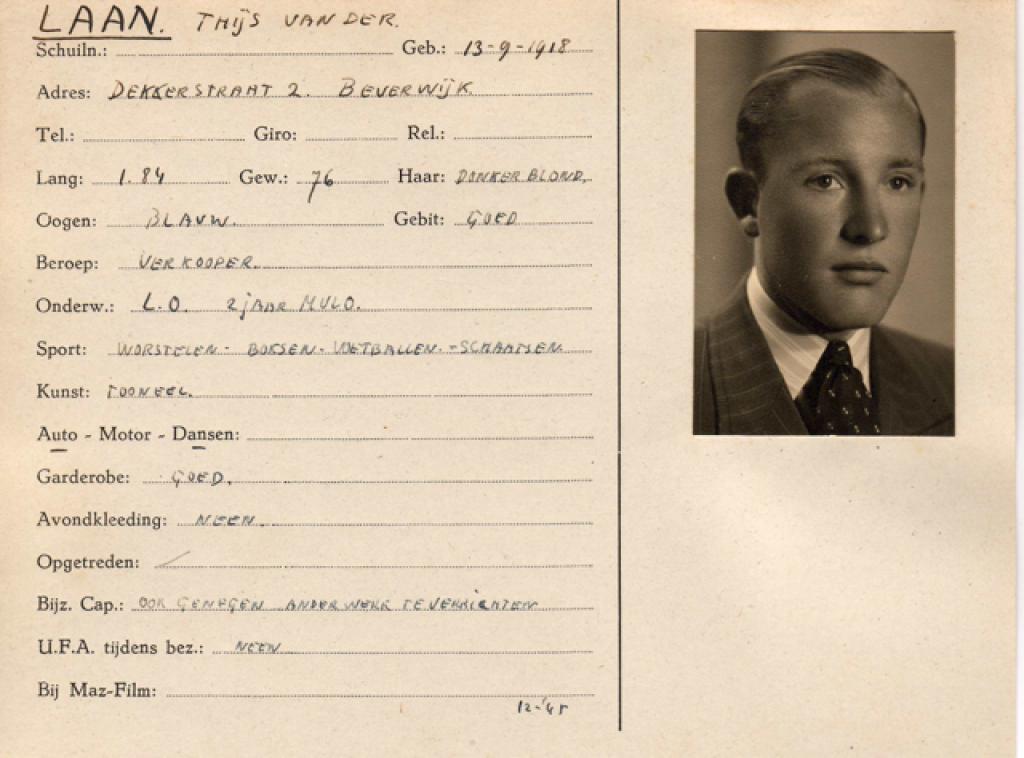 LAAN. THIJS VAN DER.
Schuiln.: Geb.: 13-9-1918
Adres: DEKKERSTRAAT 2. BEVERWIJK
Tel.: Giro: Rel.:
Lang: 1.84 Gew.: 76 Haar: DONKERBLOND.
Oogen: BLAUW. Gebit: GOED
Beroep: VERKOOPER.
Onderw.: L.O. 2 jAAR MULO.
Sport: WORSTELEN - BOKSEN - VOETBALLEN. - SCHAATSEN
Kunst: TOONEEL.
Auto - Motor - Dansen:
Garderobe: GOED.
Avondkleeding: NEEN.
Opgetreden: /
Bijz. Cap.: OOK GENEGEN ANDER WERK TE VERRICHTEN
U.F.A. tijdens bez.: NEEN
Bij Maz-Film:
12-'45